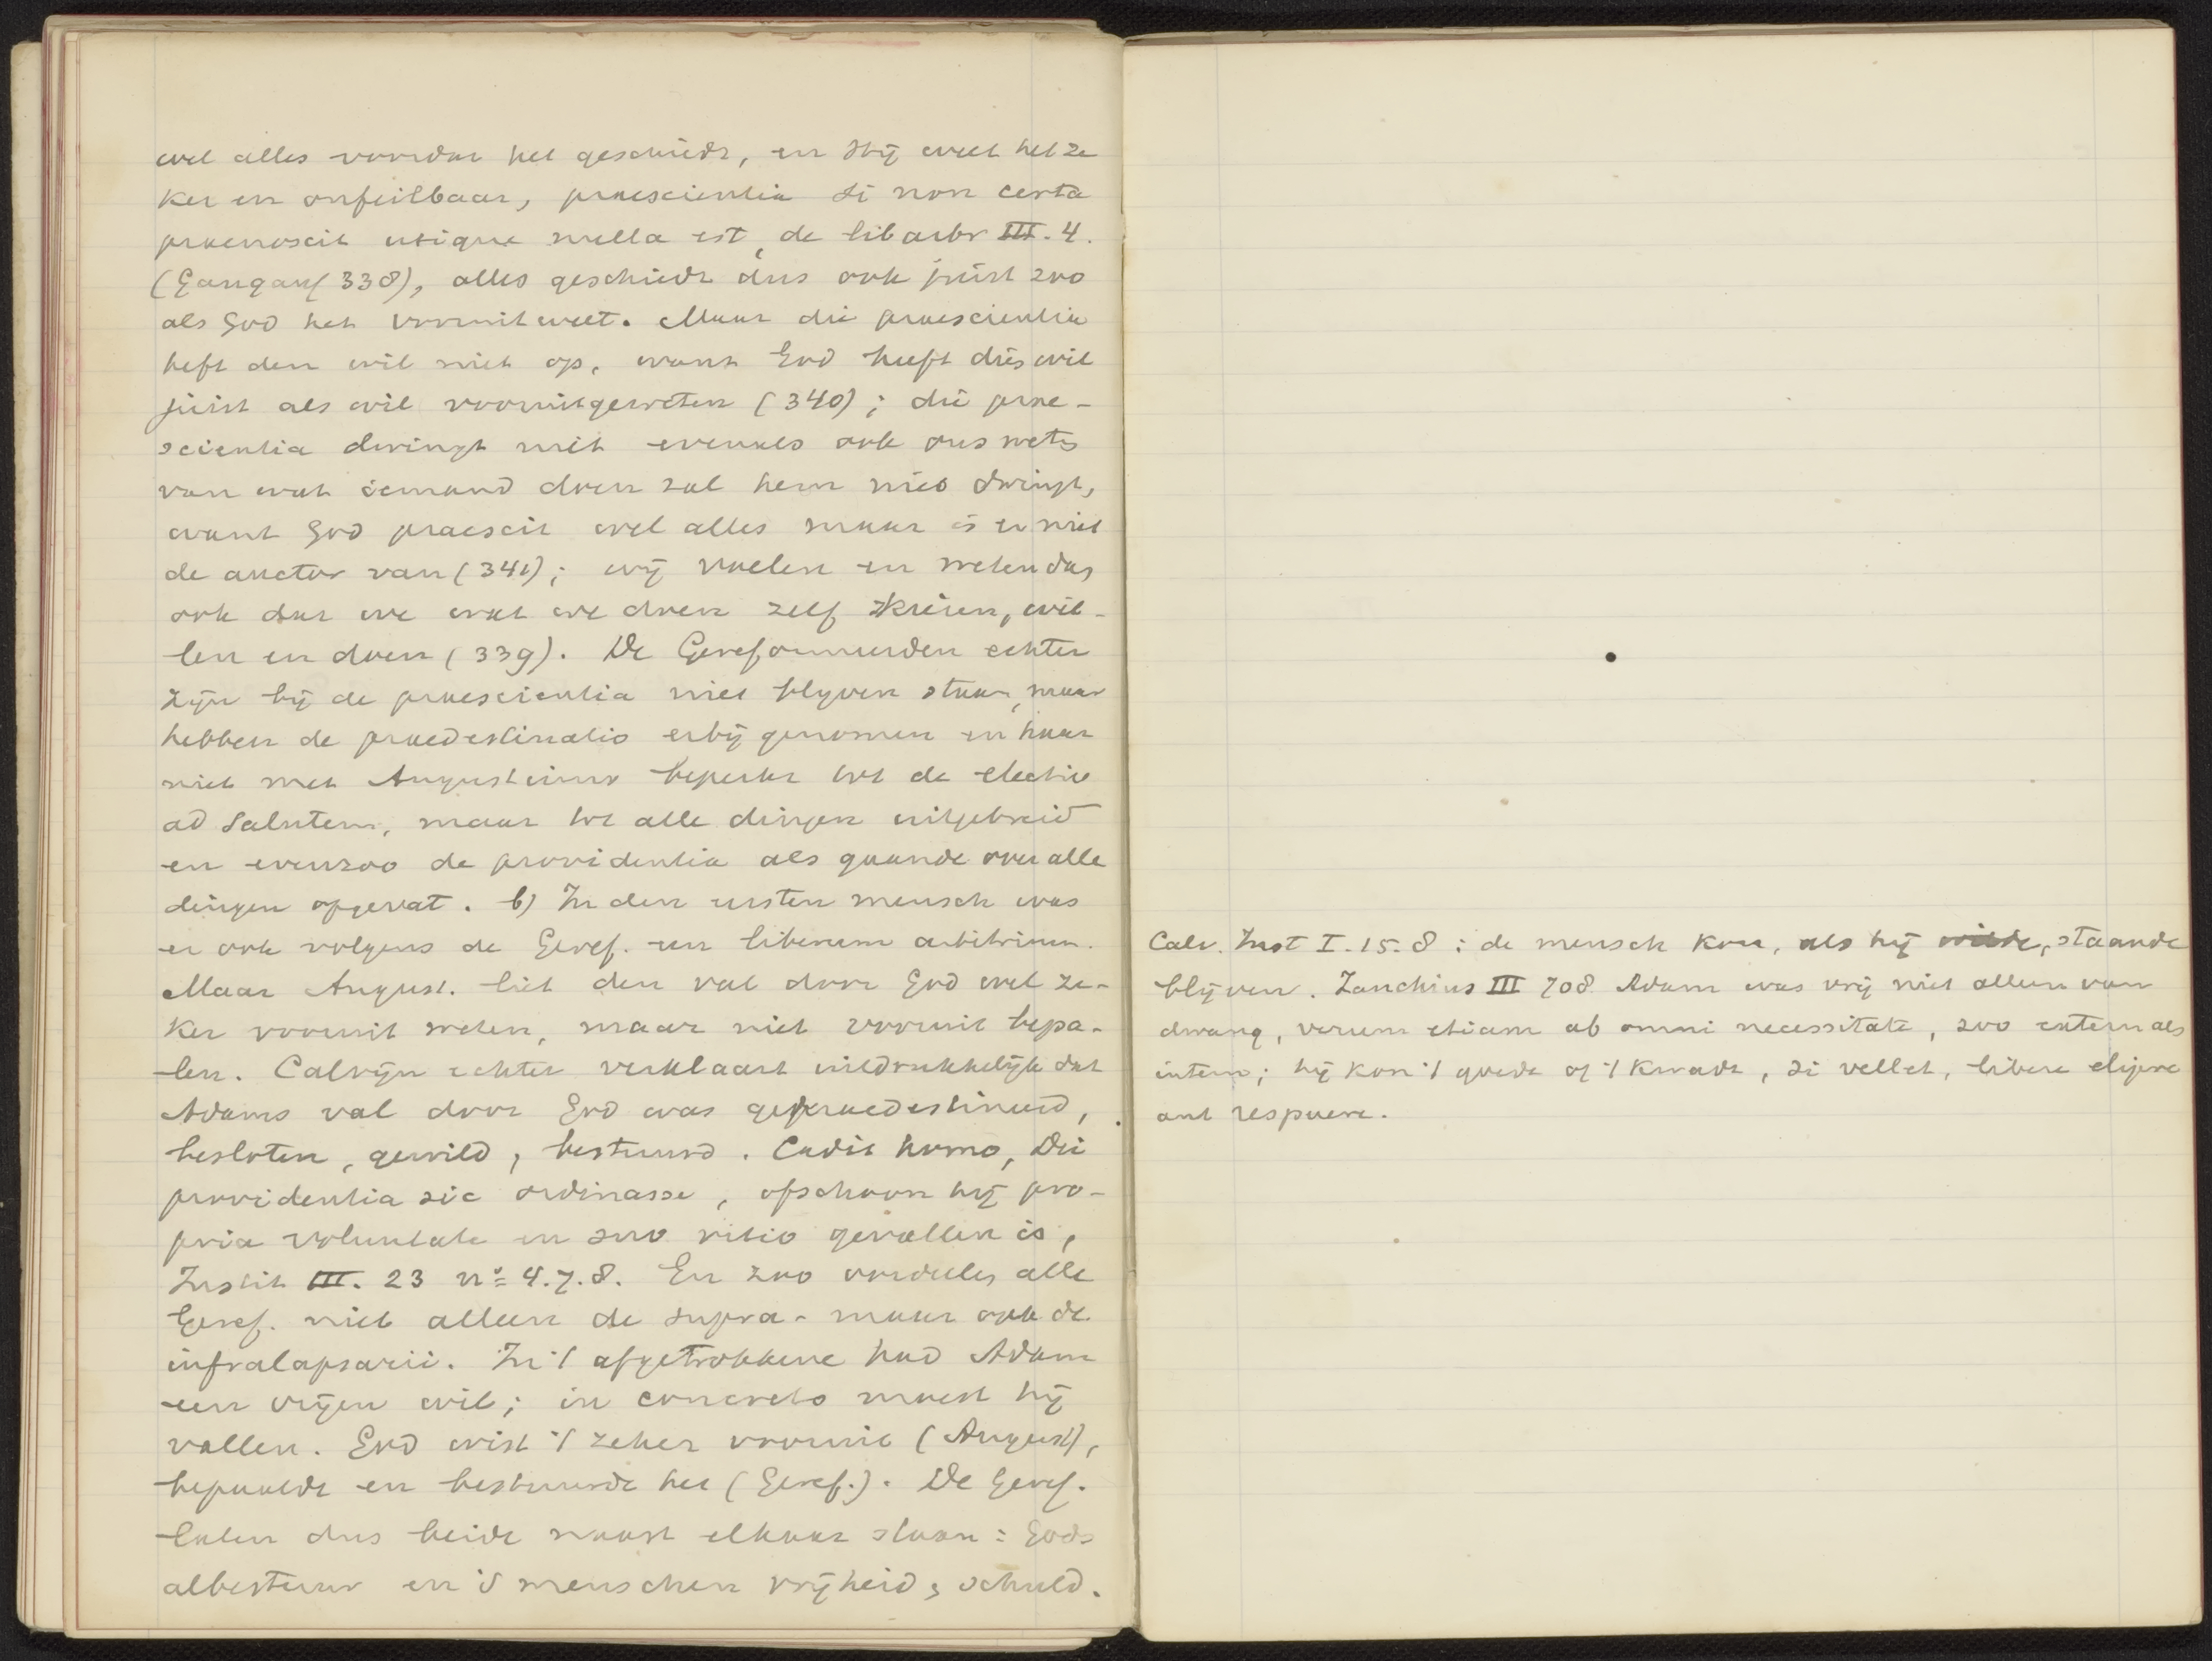 wel alles voordat het geschiedt, en Hij weet het ze
ker en onfeilbaar, praescientia si non certa
praenoscit utique nulla est, de lib arbr III. 4.
(Gangauf 338), alles geschiedt dus ook juist zoo
als God het vooruitweet. Maar die praescientia
heft den wil niet op, want God heeft dies wil
juist als wil vooruitgeweten (340); die prae-
scientia dwingt niet evenals ook ons weten
van wat iemand doen zal hem niet dwingt,
want God praescit wel alles maar is er niet
de auctor van (341); wij voelen en weten dan
ook dat we wat we doen zelf kiezen, wil-
len en doen (339). De Gereformeerden echter
zijn bij de praescientia niet blijven staan, maar
hebben de praedestinatio erbij genomen en haar
niet met Augustinus beperkt tot de electio
ad salutem, maar tot alle dingen uitgebreid
en evenzoo de providentia als gaande over alle
dingen opgevat. b) In den eersten mensch was
er ook volgens de Geref. een liberum arbitrium.
Maar August. liet den val door God wel ze-
ker vooruit weten, maar niet vooruit bepa-
len. Calvijn echter verklaart uitdrukkelijk dat
Adams val door God was gepraedestineerd,
besloten, gewild, bestuurd. Cadit homo, Dei
providentia sic ordinasse, ofschoon hij pro-
pria voluntate en suo vitio gevallen is,
Instit III. 23 no 4. 7. 8. En zoo oordeelen alle
Geref. niet alleen de supra- maar ook de
infralapsarii. In 't afgetrokkene had Adam
een vrijen wil; in concreto moest hij
vallen. God wist 't zeker vooruit (August),
bepaalde en bestuurde het (Geref.). De Geref.
laten dus beide naast elkaar staan: Gods
albestuur en 's menschen vrijheid, schuld.
Calv. Inst I. 15. 8: de mensch kon, als hij wilde, staande
blijven. Zanchius III 708 Adam was vrij niet alleen van
dwang, verum etiam ab omni necessitate, zoo extern als
intern; hij kon 't goede of 't kwade, si vellet, libere eligere
aut respuere.